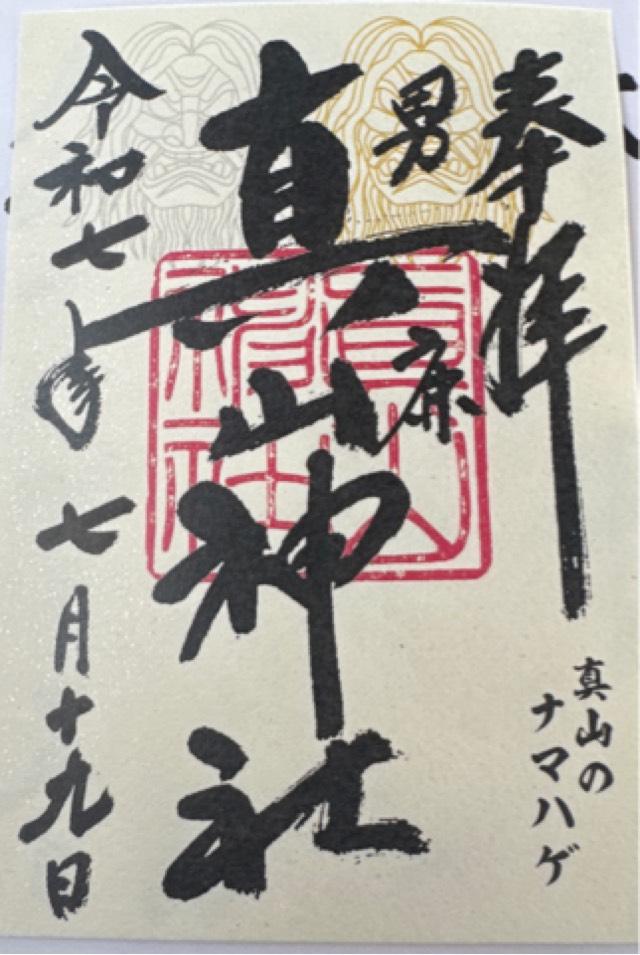 奉拝
男鹿
真山神社
令和七年七月十九日
真山の
ナマハゲ
真山神社